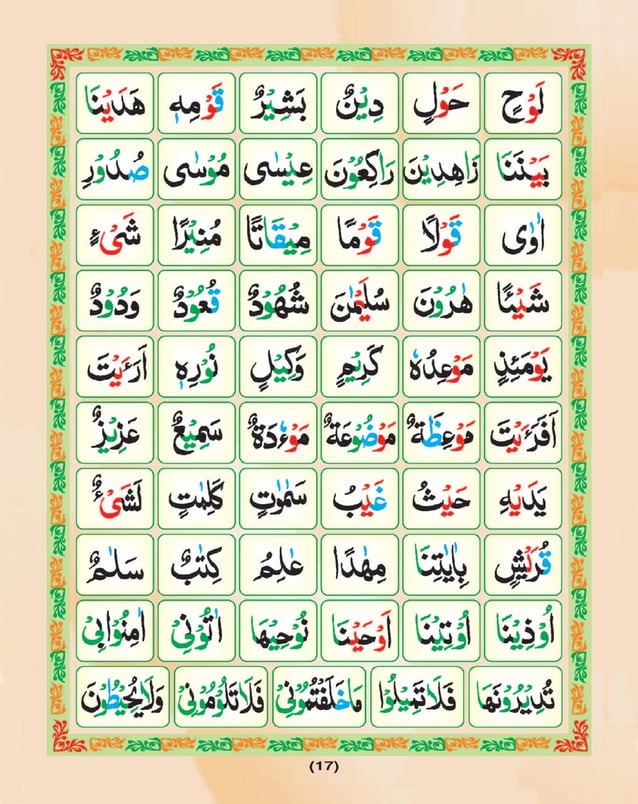 لَوْحٍ حَوْلٍ دِيْنٌ بَشِيْرٌ قَوْمِهٖ هَدَيْنَا
بَيْنَنَا زَاهِدِيْنَ رَاكِعُوْنَ عِيْسٰى مُوْسٰى صُدُوْرِ
اٰوٰى قَوْلًا قَوْمًا مِيْقَاتًا مُنِيْرًا شَىْءٍ
شَيْئًا هٰرُوْنَ سُلَيْمٰنَ شُهُوْدٌ قُعُوْدٌ وَدُوْدٌ
يَوْمَئِذٍ مَوْعِدُهٗ كَرِيْمٍ وَكِيْلٍ نُوْرِهٖ اَرَءَيْتَ
اَفَرَءَيْتَ مَوْعِظَةٌ مَوْضُوْعَةٌ مَوْءٗدَةٌ سَمِيْعٌ عَزِيْزٌ
يَدَيْهِ حَيْثُ غَيْبُ سَمٰوٰتٍ كَلِمٰتٍ لَشَىْءٌ
قُرَيْشٍ بِاٰيٰتِنَا مِهٰدًا عٰلِمُ كِتٰبٌ سَلٰمٌ
اُوْذِيْنَا اُوْتِيْنَا اَوْحَيْنَا نُوْحِيْهَا اٰتُوْنِيْ اٰمِنُوْابِيْ
تُدِيْرُوْنَهَا فَلَا تَمِيْلُوْا مَاخَلَفْتُمُوْنِيْ فَلَا تَلُوْمُوْنِيْ وَلَا يُحِيْطُوْنَ
(17)